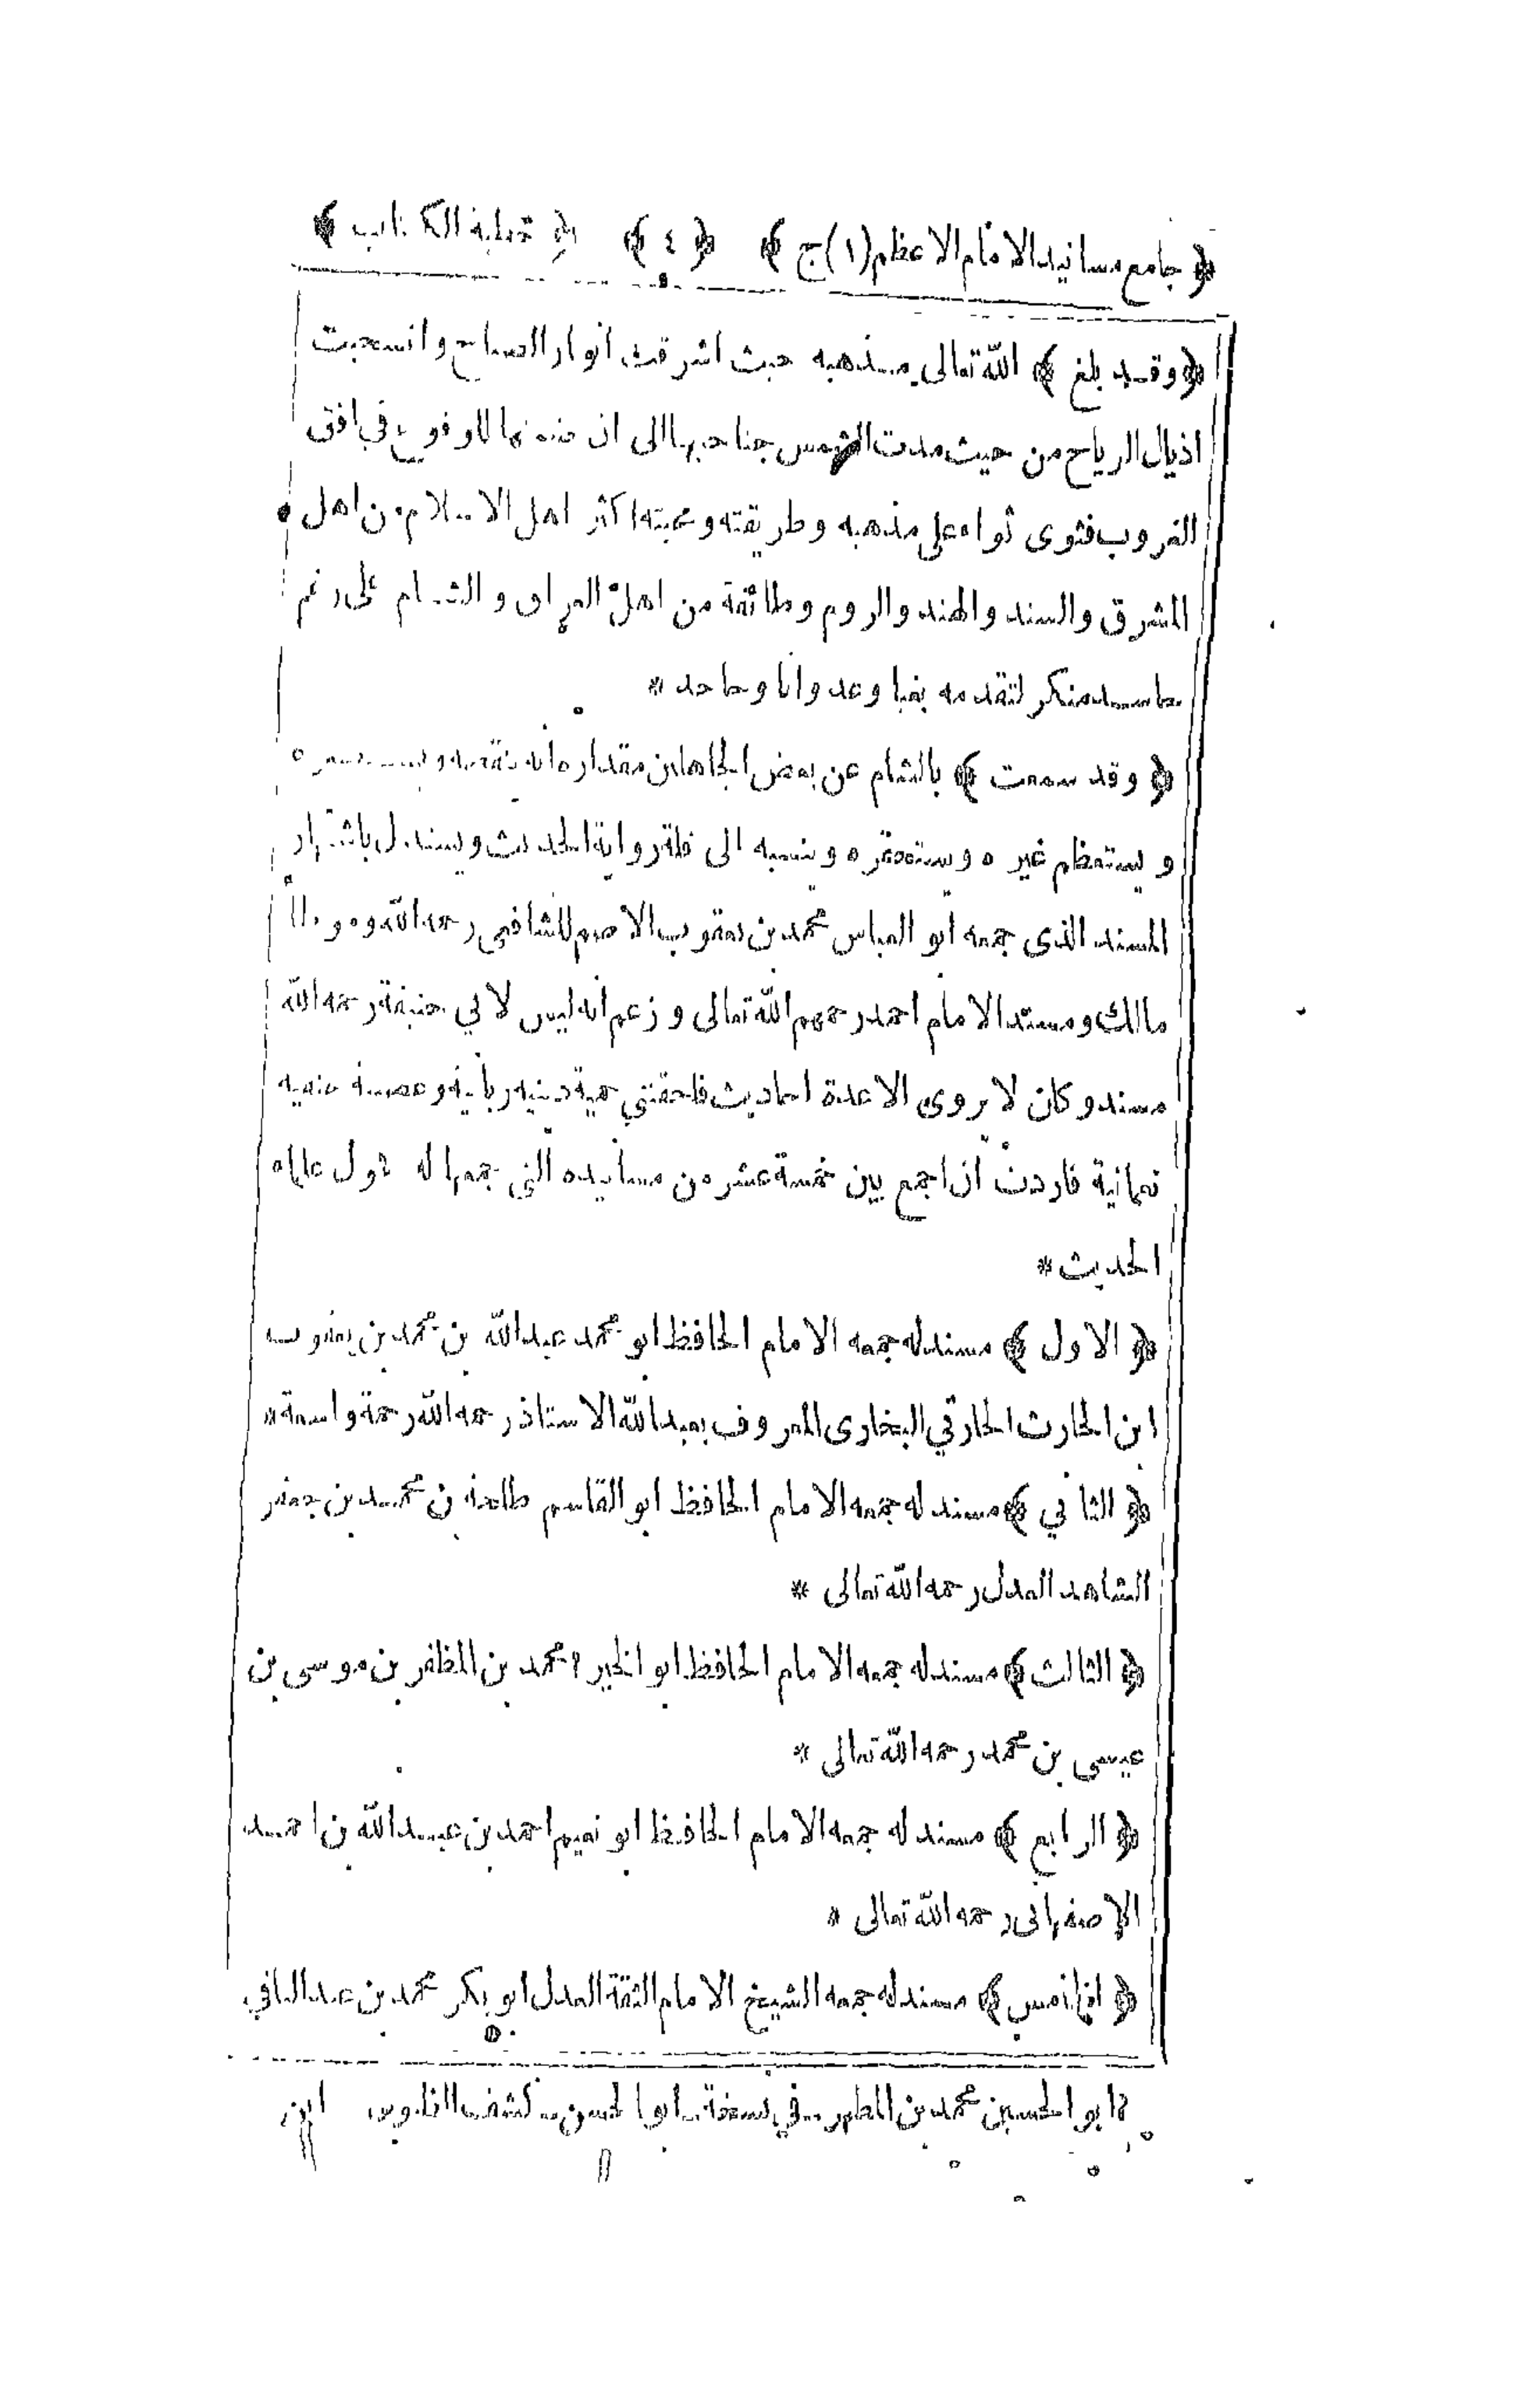 ﴿ جامع مسانيد الامام الاعظم (١) ج ﴾ ﴿ ٤ ﴾ ﴿ خطبة الكتاب ﴾
﴿ وقد بلغ ﴾ الله تعالى مذهبه حيث اشرقت انوار الصباح وانسحبت
اذيال الرياح من حيث مدت الشمس جناحيها الى ان ضمتهما للوقوع في افق
الغروب فثوى ثواه على مذهبه وطريقته ومحبته اكثر اهل الاسلام من اهل
المشرق والسند والهند والروم وطائفة من اهل العراق والشام على رغم
حاسد منكر لتقدمه بغيا وعدوانا وجاحد *
﴿ وقد سمعت ﴾ بالشام عن بعض الجاهلين مقداره انه ينقصه ويستصغره
ويستعظم غيره ويستحقره وينسبه الى قلة رواية الحديث ويستدل باشتهار
المسند الذى جمعه ابو العباس محمد بن يعقوب الاصم للشافعي رحمه الله وموطأ
مالك ومسند الامام احمد رحمهم الله تعالى وزعم انه ليس لابي حنيفة رحمه الله
مسند وكان لا يروى الا عدة احاديث فلحقتني حمية دينيه ربانية وعصبية حنفيه
نعمانية فاردت ان اجمع بين خمسة عشر من مسانيده التي جمعها له فحول علماء
الحديث *
﴿ الاول ﴾ مسند له جمعه الامام الحافظ ابو محمد عبدالله بن محمد بن يعقوب
ابن الحارث الحارثي البخارى المعروف بعبدالله الاستاذ رحمه الله رحمة واسعة *
﴿ الثاني ﴾ مسند له جمعه الامام الحافظ ابو القاسم طلحة بن محمد بن جعفر
الشاهد العدل رحمه الله تعالى *
﴿ الثالث ﴾ مسند له جمعه الامام الحافظ ابو الخير ٢ محمد بن المظفر بن موسى بن
عيسى بن محمد رحمه الله تعالى *
﴿ الرابع ﴾ مسند له جمعه الامام الحافظ ابو نعيم احمد بن عبدالله بن احمد
الاصفهانى رحمه الله تعالى *
﴿ الخامس ﴾ مسند له جمعه الشيخ الامام الثقة العدل ابو بكر محمد بن عبد الباقي
٢ ابو الحسين محمد بن المطهر - في نسخة - ابو الحسن - كشف الظنون ابن